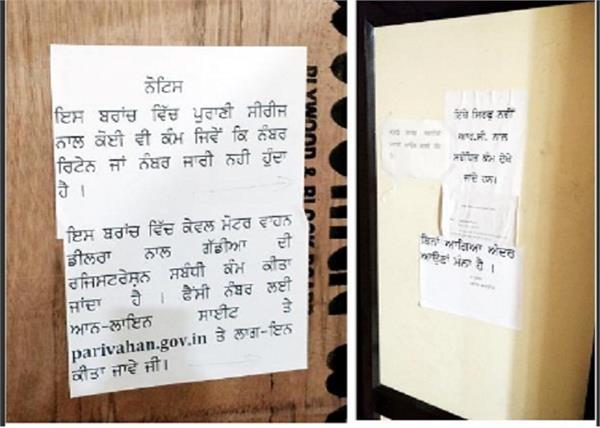 ਨੋਟਿਸ
ਇਸ ਬਰਾਂਚ ਵਿੱਚ ਪੁਰਾਣੀ ਸੀਰੀਜ
ਨਾਲ ਕੋਈ ਵੀ ਕੰਮ ਜਿਵੇਂ ਕਿ ਨੰਬਰ
ਰਿਟੇਨ ਜਾਂ ਨੰਬਰ ਜਾਰੀ ਨਹੀ ਹੁੰਦਾ
ਹੈ ।
ਇਸ ਬਰਾਂਚ ਵਿੱਚ ਕੇਵਲ ਮੋਟਰ ਵਾਹਨ
ਡੀਲਰਾ ਨਾਲ ਗੱਡੀਆ ਦੀ
ਰਜਿਸਟਰੇਸ਼ਨ ਸਬੰਧੀ ਕੰਮ ਕੀਤਾ
ਜਾਂਦਾ ਹੈ । ਫੈਂਸੀ ਨੰਬਰ ਲਈ
ਆਨ-ਲਾਇਨ ਸਾਈਟ ਤੇ
parivahan.gov.in ਤੇ ਲਾਗ-ਇਨ
ਕੀਤਾ ਜਾਵੇ ਜੀ।
PLYWOOD &
ਇਥੇ ਸਿਰਫ ਨਵੀਂ
ਆਰ.ਸੀ. ਨਾਲ
ਸਬੰਧਿਤ ਕੰਮ ਦੇਖੇ
ਜਾਂਦੇ ਹਨ।
ਬਿਨਾਂ ਆਗਿਆ ਅੰਦਰ
ਆਉਣਾਂ ਮੰਨਾ ਹੈ ।